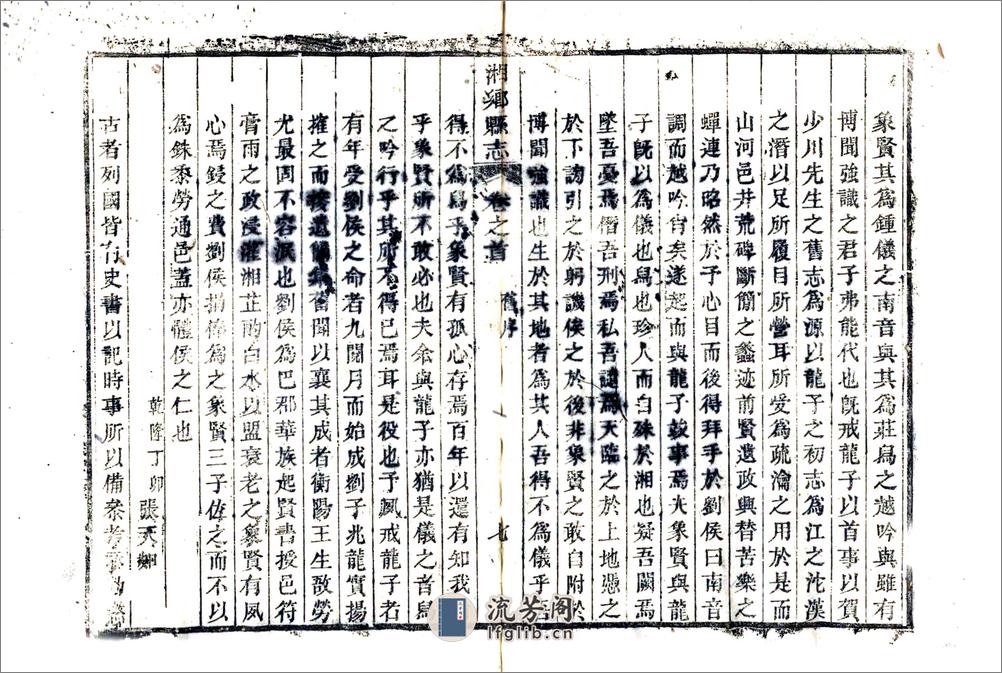 象賢其為鍾儀之南音與其為莊舄之越吟與雖有
博聞強識之君子弗能代也旣戒龍子以首事以賀
少川先生之舊志為源以龍子之初志為江之沱漢
之潛以足所履目所營耳所受為疏瀹之用於是而
山河邑井荒碑斷簡之蠡迹前賢遺政興替苦樂之
蟬連乃昭然於予心目而後得拜手於劉侯曰南音
調而越吟宵矣遂起而與龍子敘事焉夫象賢與龍
子旣以為儀也舄也珍人而自殊於湘也疑吾闕焉
墜吾憂焉僭吾刑焉私吾譴焉天臨之於上地憑之
於下謗引之於躬譏俟之於後非象賢之敢自附於
博聞強識也生於其地者為其人吾得不為儀乎吾
湘鄉縣志 卷之首 舊序 七
得不為舄乎象賢有孤心存焉百年以還有知我
乎象賢所不敢必也夫余與龍子亦猶是儀之音舄
之吟行乎其所不得已焉耳是役也予夙戒龍子者
有年受劉侯之命者九閱月而始成劉子兆龍實揚
搉之而 遺 舊聞以襄其成者衡陽王生敔勞
尤最固不容泯也劉侯為巴郡華族起賢書授邑符
膏雨之政浸灌湘芷酌白水以盟衰老之象賢有夙
心焉鋟之費劉侯捐俸為之象賢三子佐之而不以
為銖黍勞通邑蓋亦體侯之仁也
乾隆丁卯張天
古者列國皆有史書以記時事所以備參考
流芳阁
lfglib.cn